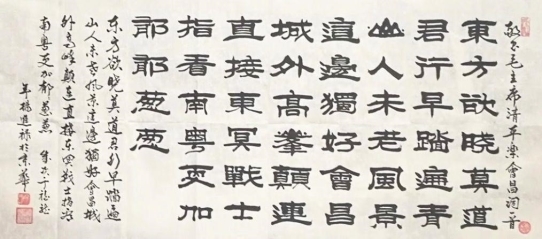 敬书毛主席清平樂會昌詞一首
東方欲曉莫道
君行早踏遍青
山人未老風景
這邊獨好會昌
城外高峯顛連
直接東冥戰士
指看南粵更加
郁郁葱葱
东方欲晓莫道君行早踏遍
山人未老風景這邊獨好會昌城
外高峰顛連直接东冥战士指看
南粵更加郁葱葱
於京華